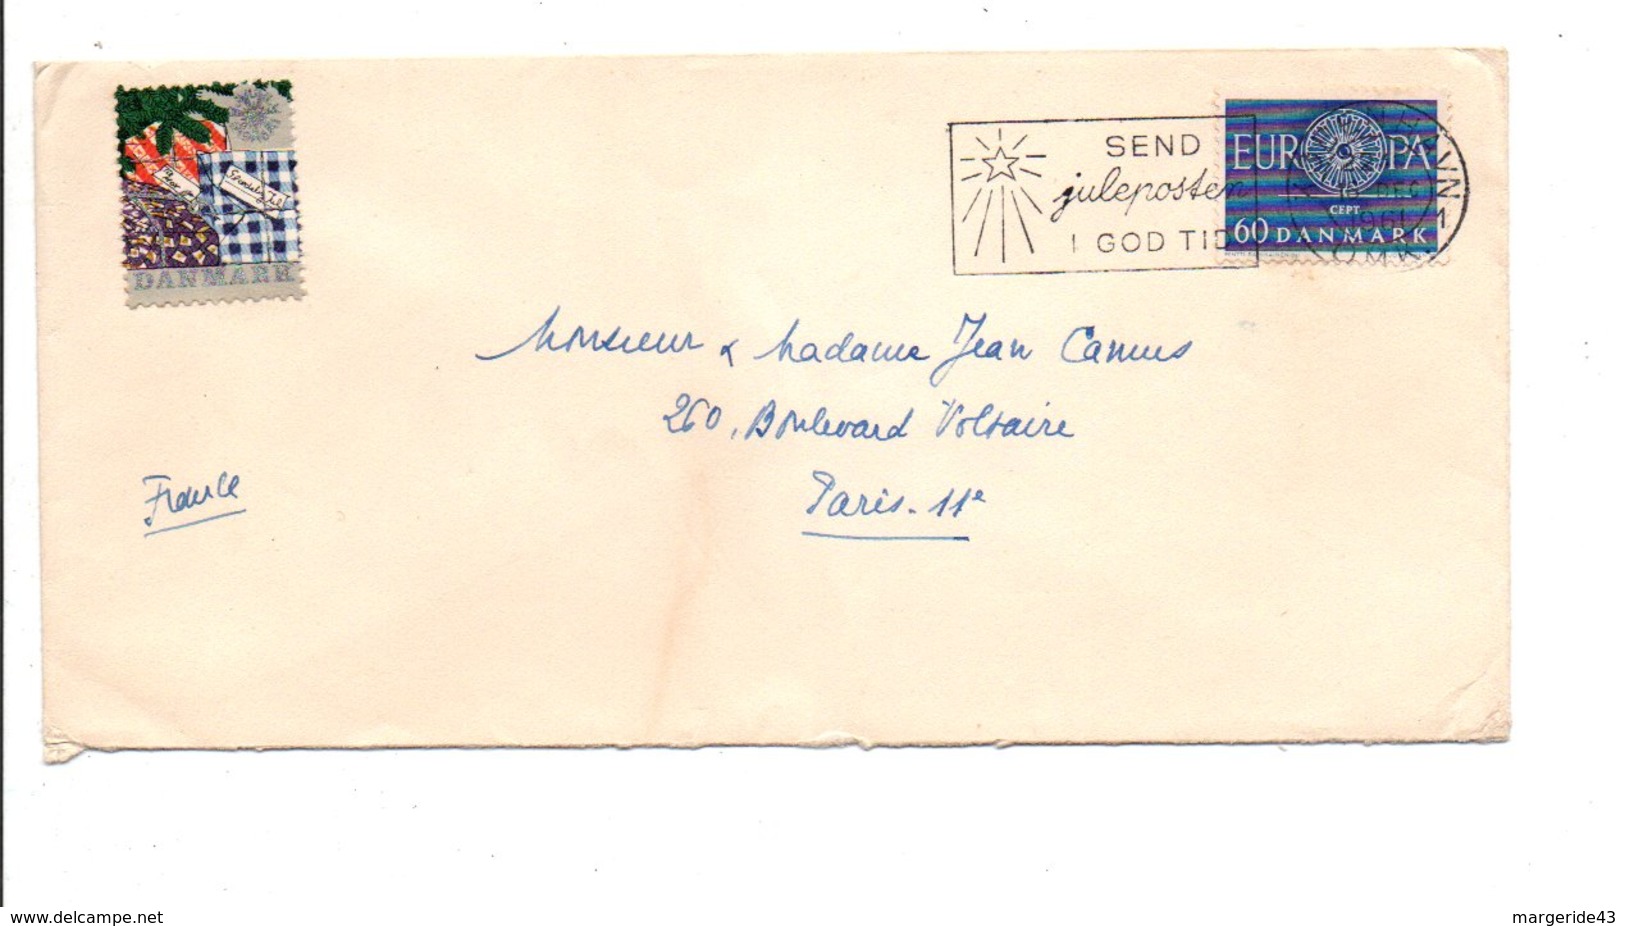 SEND
juleposten
I GOD TID
EUROPA
CEPT
60 DANMARK
DEC
1961
DANMARK
Monsieur & Madame Jean Camus
260, Boulevard Voltaire
Paris. 11e
France
www.delcampe.net
margeride43